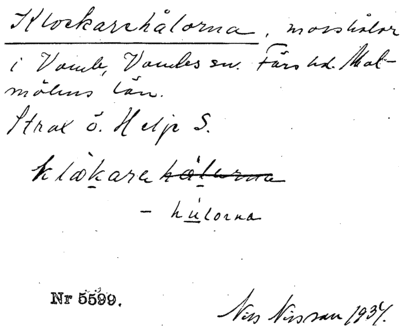 Klockarehålorna, mosshålor
i Vomb, Vombs sn. Färs hd. Mal-
möhus län.
Strax ö. Helje S.
klåkara hålorna
- húlorna
Nr 5599.
Nils Nilsson 1937.